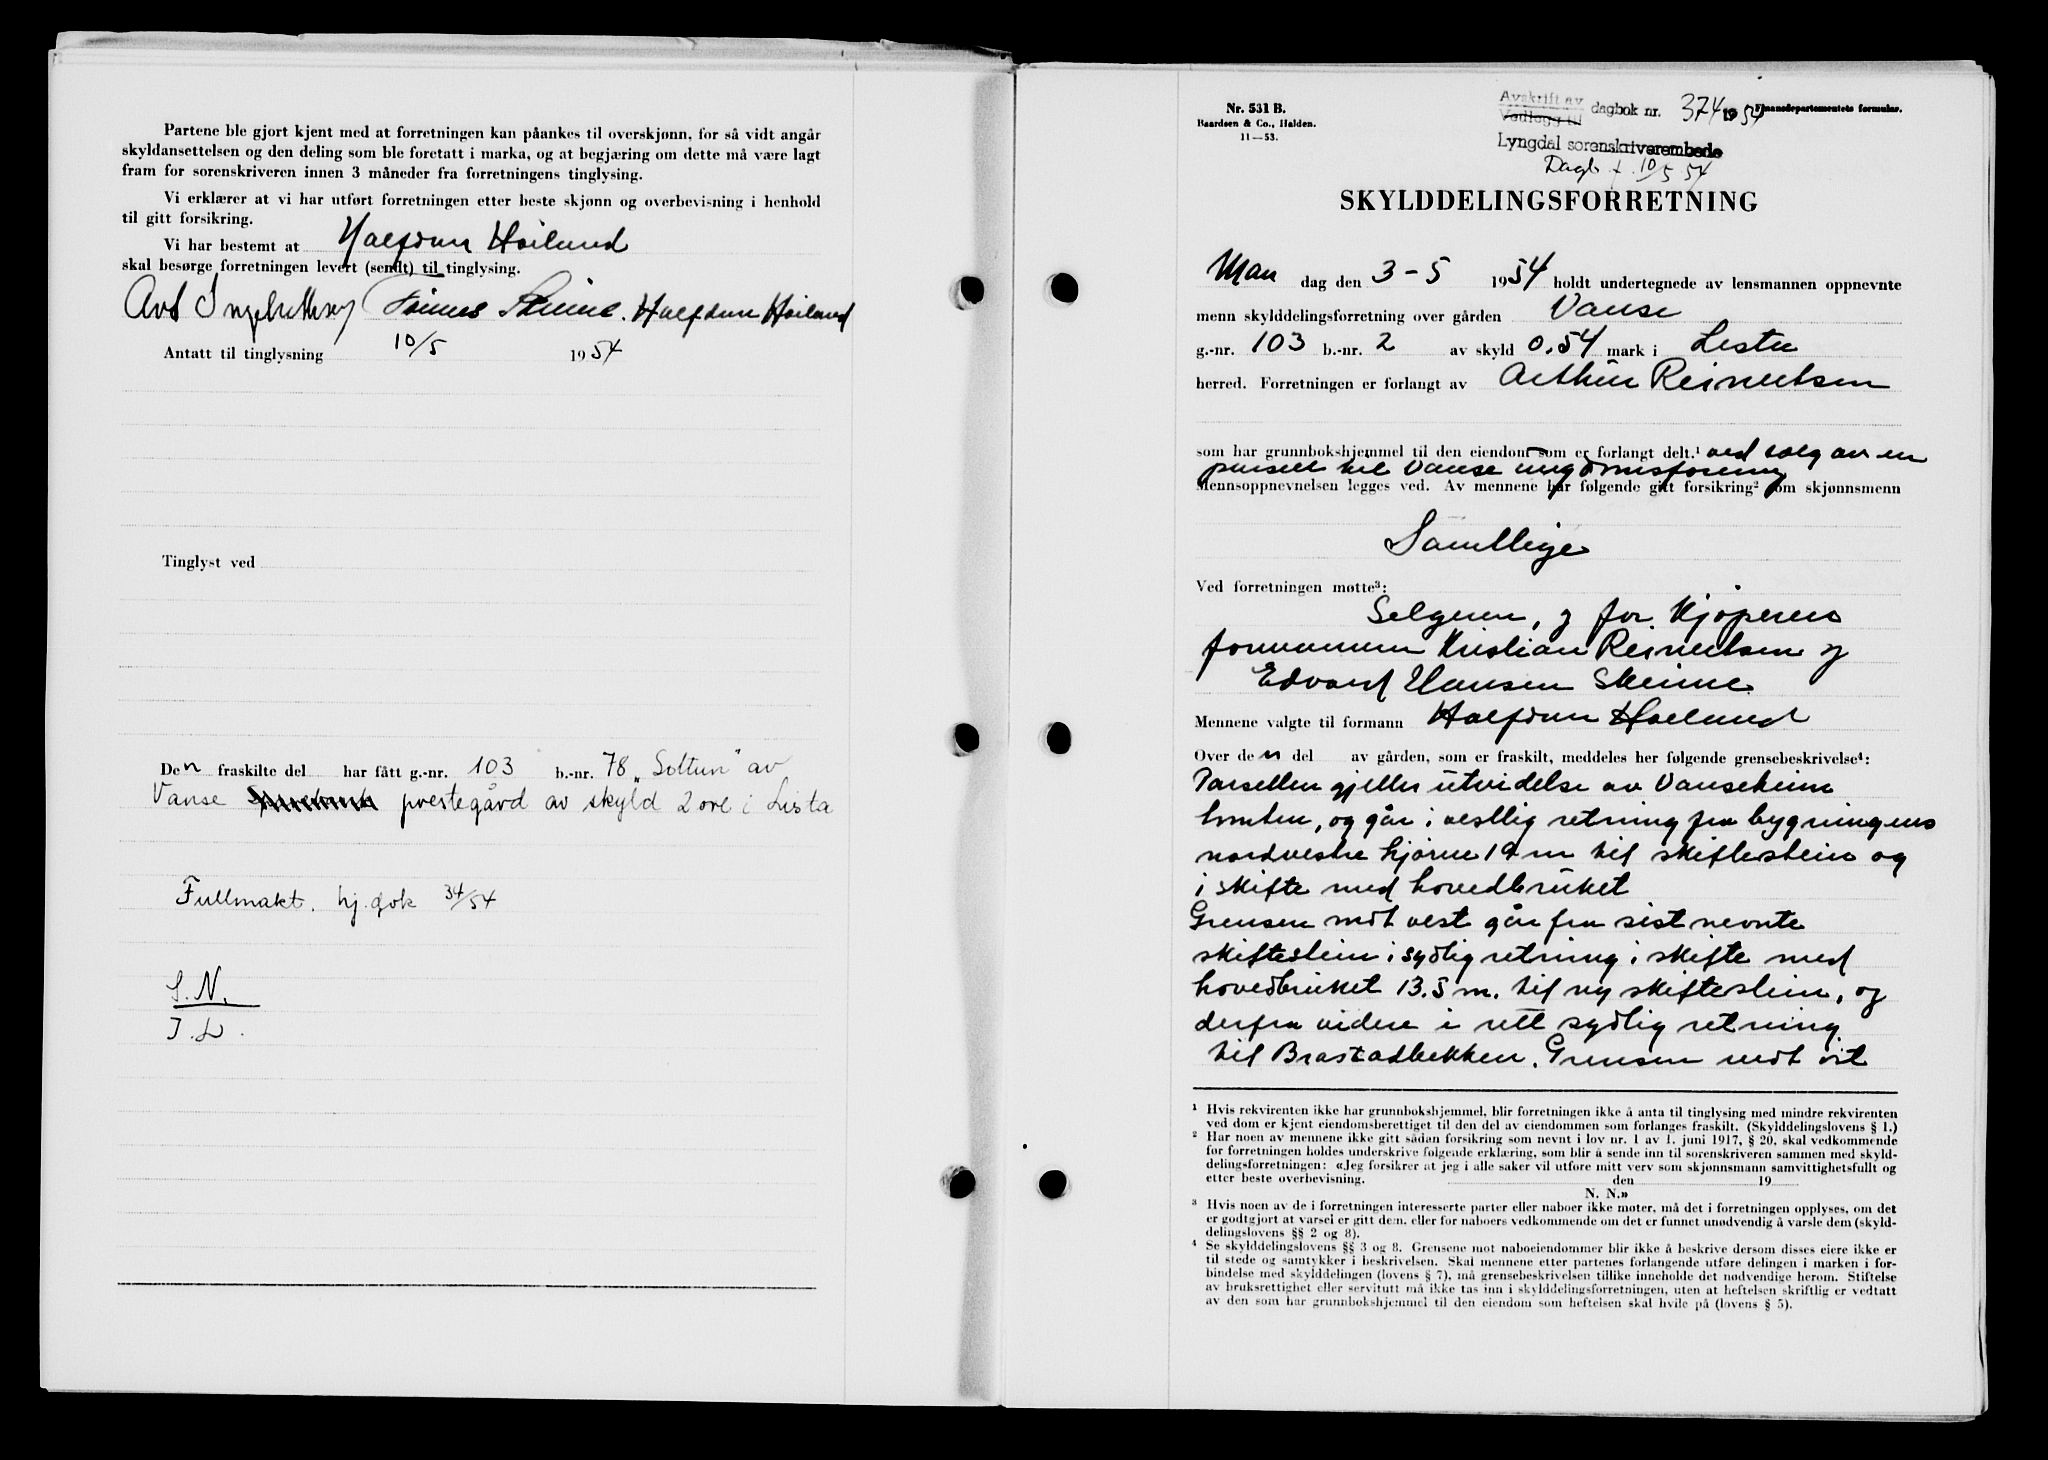 Partene ble gjort kjent med at forretningen kan påankes til overskjønn, for så vidt angår
skyldansettelsen og den deling som ble foretatt i marka, og at begjæring om dette må være lagt
fram for sorenskriveren innen 3 måneder fra forretningens tinglysing.
Vi erklærer at vi har utført forretningen etter beste skjønn og overbevisning i henhold
til gitt forsikring.
Vi har bestemt at Halfdan Høiland
skal besørge forretningen levert (sendt) til tinglysing.
Halfdan Høiland
Antatt til tinglysning 10/5 1954
Tinglyst ved
Den fraskilte del har fått g.-nr. 103 b.-nr. 78 „Soltun" av
Vanse prestegård av skyld 2 øre i Lista
Fullmakt. hj. dok 34/54
S.N.
J.L.
Nr. 531 B.
Baardsen & Co., Halden.
11—53.
Avskrift av
Vedlegg til
dagbok nr. 374 1954
Finansdepartementets formular.
Lyngdal sorenskriverembede
Dagb. f. 10/5 54
SKYLDDELINGSFORRETNING
Man dag den 3-5 1954 holdt undertegnede av lensmannen oppnevnte
menn skylddelingsforretning over gården Vanse
g.-nr. 103 b.-nr. 2 av skyld 0.54 mark i Lista
herred. Forretningen er forlangt av Arthur Reinertsen
som har grunnbokshjemmel til den eiendom som er forlangt delt.¹ ved salg av en
parsell til Vanse ungdomsforening
Mennsoppnevnelsen legges ved. Av mennene har følgende gitt forsikring² som skjønnsmenn
Samtlige
Ved forretningen møtte³:
Selgeren, og for Kjøperen
formannen Kristian Reinertsen og
Edvard Hansen Skeime
Mennene valgte til formann Halfdan Høiland
Over den del av gården, som er fraskilt, meddeles her følgende grensebeskrivelse⁴:
Parsellen gjeller utvidelse av Vanseheim
tomten, og går i vestlig retning fra bygningens
nordvestre hjørne 19 m til skiftestein og
i skifte med hovedbruket
Grensen mot vest går fra sist nevnte
skiftestein i sydlig retning i skifte med
hovedbruket 13.5 m. til ny skiftestein, og
derfra videre i rett sydlig retning
til Brastadbekken. Grensen mot øst
¹ Hvis rekvirenten ikke har grunnbokshjemmel, blir forretningen ikke å anta til tinglysing med mindre rekvirenten
ved dom er kjent eiendomsberettiget til den del av eiendommen som forlanges fraskilt. (Skylddelingslovens § 1.)
² Har noen av mennene ikke gitt sådan forsikring som nevnt i lov nr. 1 av 1. juni 1917, § 20, skal vedkommende
før forretningen holdes underskrive følgende erklæring, som blir å sende inn til sorenskriveren sammen med skyld-
delingsforretningen: «Jeg forsikrer at jeg i alle saker vil utføre mitt verv som skjønnsmann samvittighetsfullt og
etter beste overbevisning. den 19
N. N.»
³ Hvis noen av de i forretningen interesserte parter eller naboer ikke møter, må det i forretningen opplyses, om det
er godtgjort at varsel er gitt dem, eller for naboers vedkommende om det er funnet unødvendig å varsle dem (skyld-
delingslovens §§ 2 og 8).
⁴ Se skylddelingslovens §§ 3 og 8. Grensene mot naboeiendommer blir ikke å beskrive dersom disses eiere ikke er
til stede og samtykker i beskrivelsen. Skal mennene etter partenes forlangende utføre delingen i marken i for-
bindelse med skylddelingen (lovens § 7), må grensebeskrivelsen tillike inneholde det nødvendige herom. Stiftelse
av bruksrettighet eller servitutt må ikke tas inn i skylddelingsforretningen, uten at heftelsen skriftlig er vedtatt
av den som har grunnbokshjemmel til den eiendom som heftelsen skal hvile på (lovens § 5).